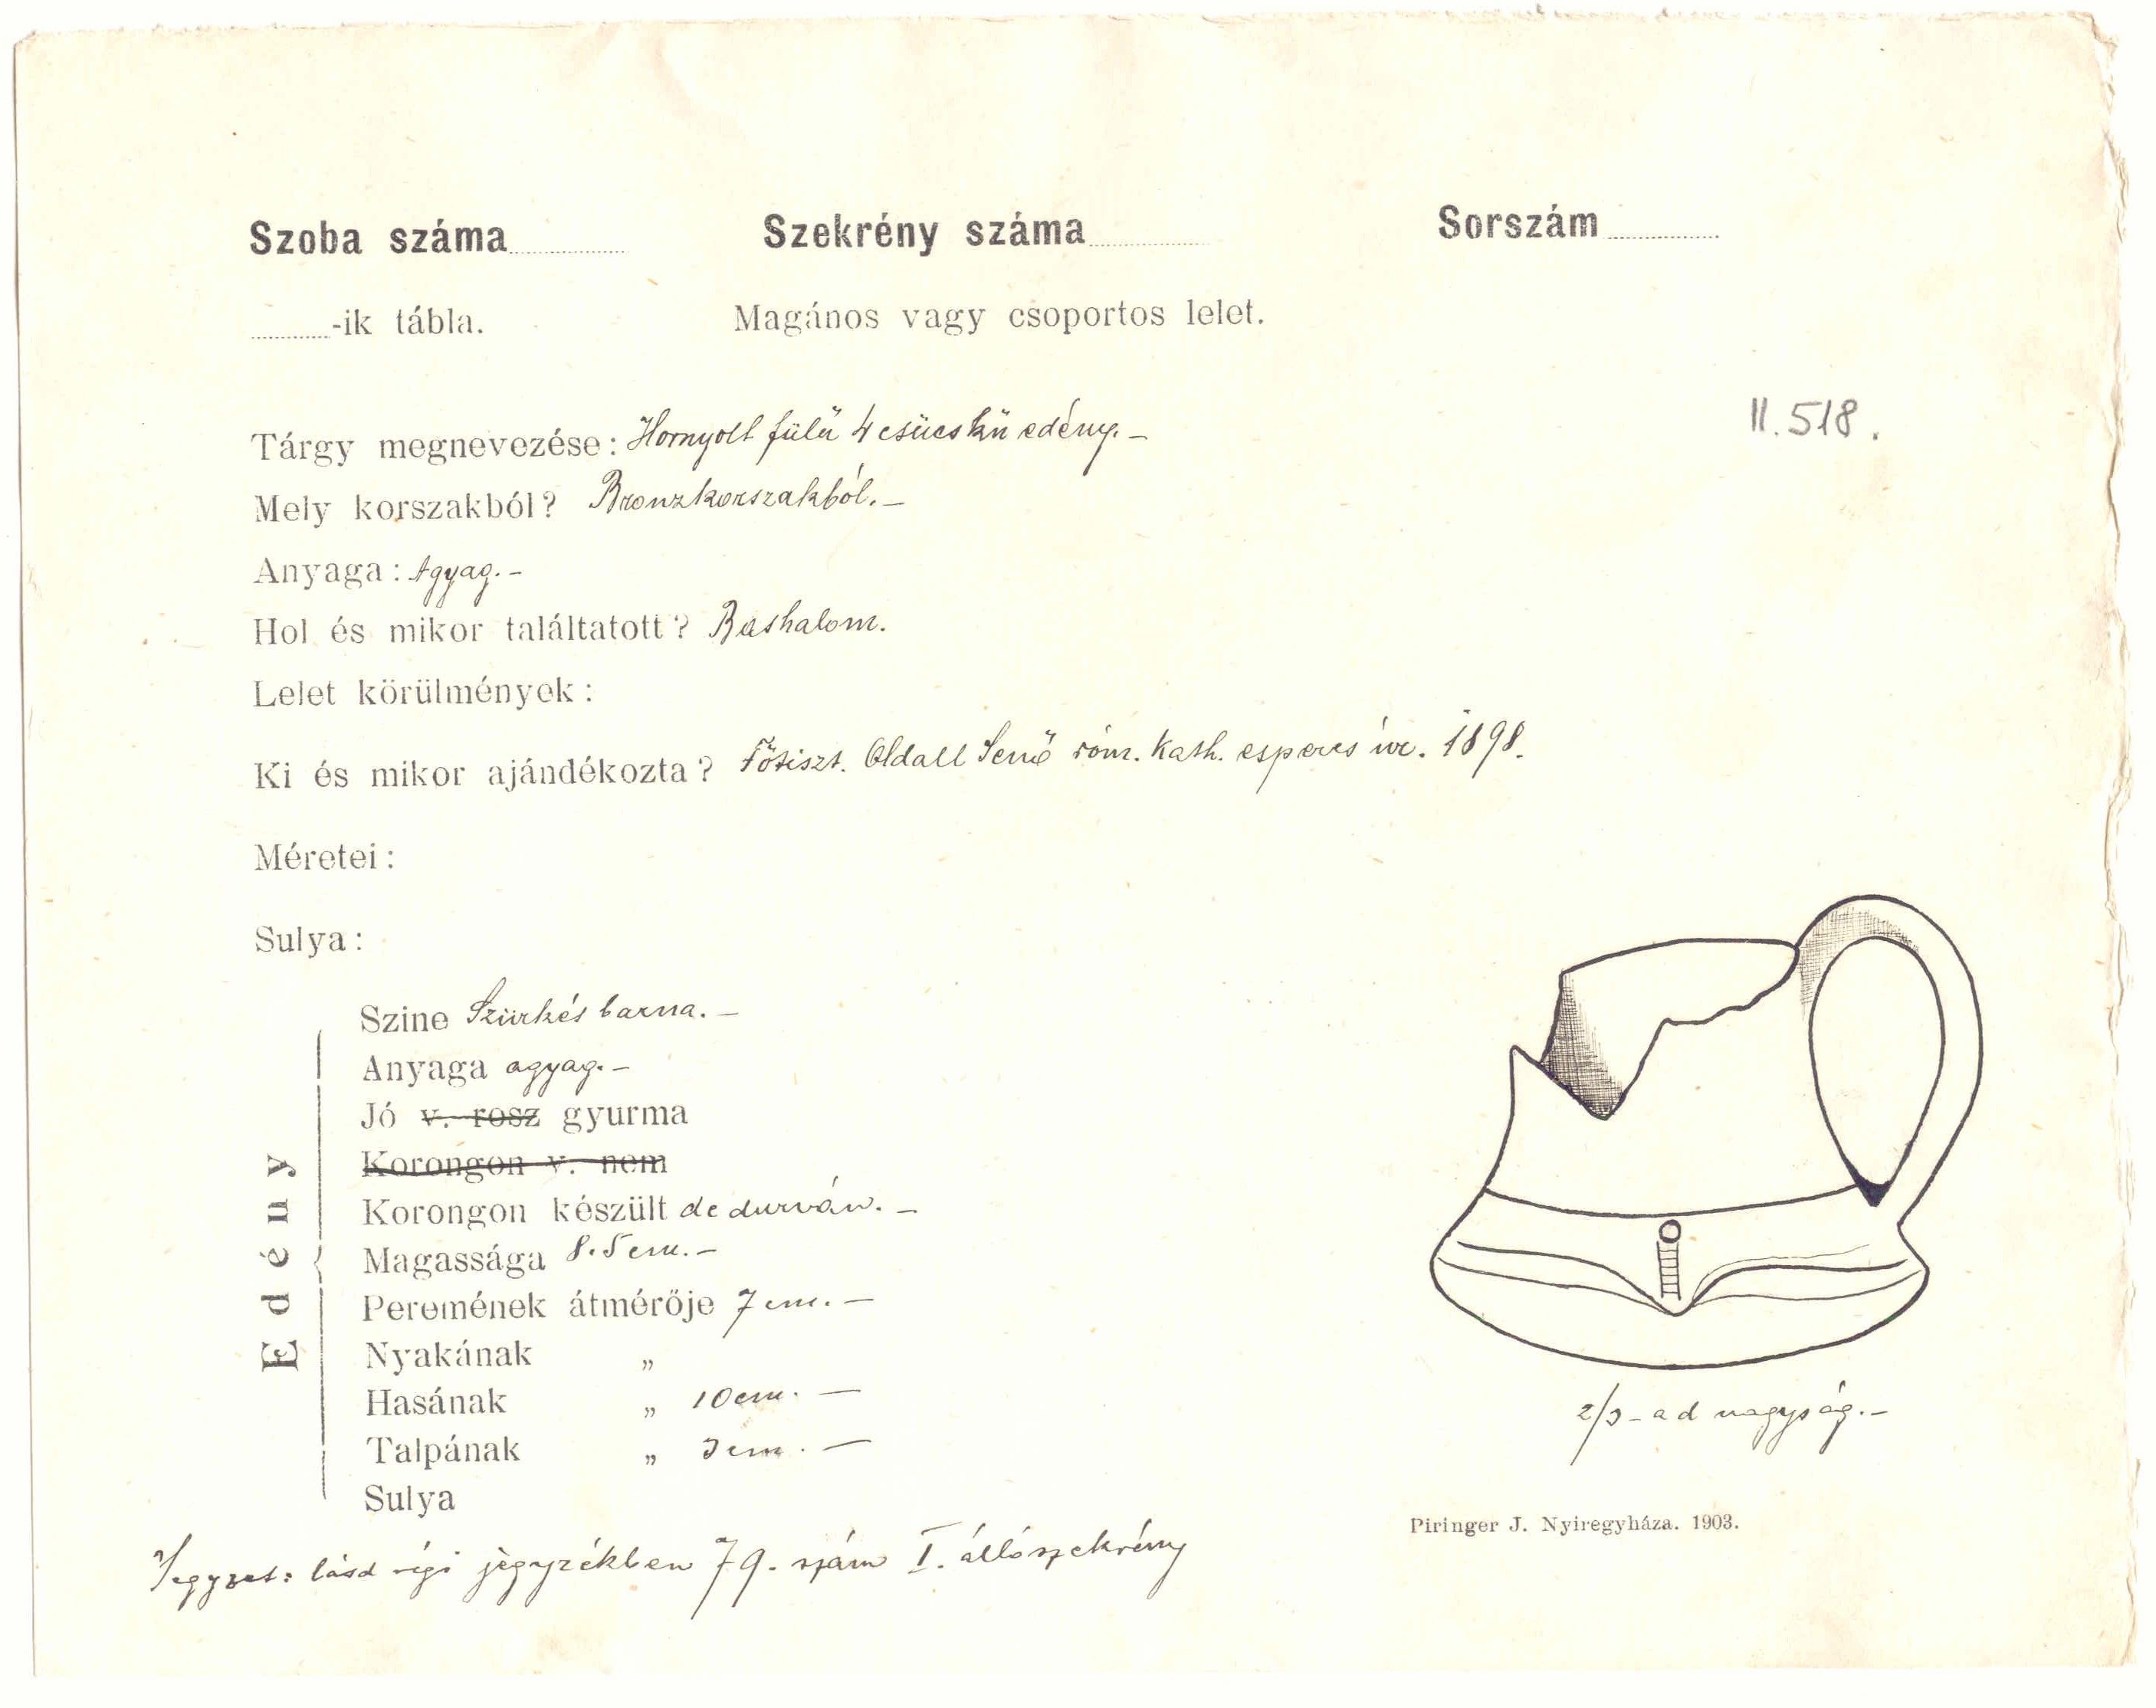 Szoba száma Szekrény száma Sorszám
-ik tábla. Magános vagy csoportos lelet.
II. 518.
Tárgy megnevezése: Hornyolt fülü 4 csücskü edény. –
Mely korszakból? Bronzkorszakból. –
Anyaga: Agyag. –
Hol és mikor találtatott? Bashalom.
Lelet körülmények:
Ki és mikor ajándékozta? Főtiszt. Oldall Jenő róm. kath. esperes úr. 1898.
Méretei:
Sulya:
Edény
Szine Szürkés barna. –
Anyaga agyag. –
Jó v. rosz gyurma
Korongon v. nem
Korongon készült de durván. –
Magassága 8.5 cm. –
Peremének átmérője 7 cm. –
Nyakának „
Hasának „ 10 cm. –
Talpának „ 3 cm. –
Sulya
2/3-ad nagyság. –
Piringer J. Nyiregyháza. 1903.
Jegyzet: lásd régi jegyzékben 79. szám I. állószekrény